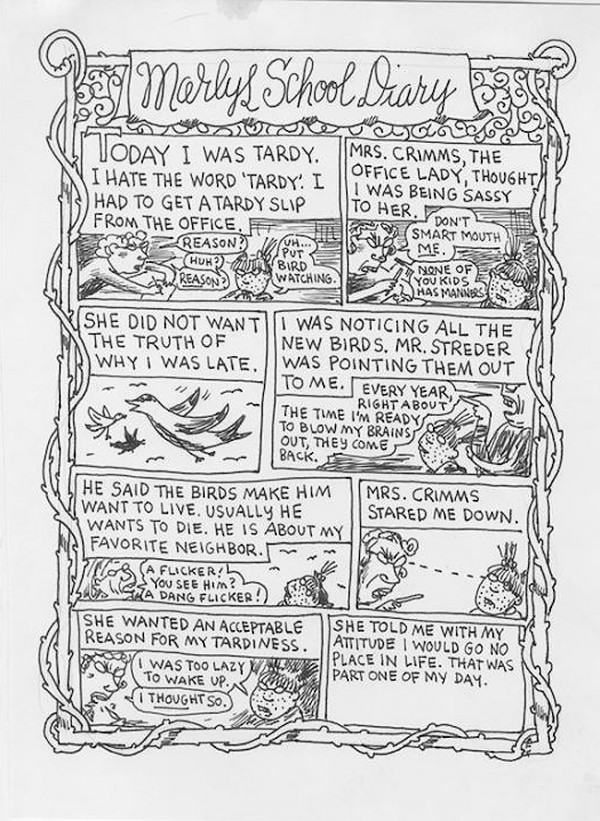 Marlys School Diary
TODAY I WAS TARDY.
I HATE THE WORD 'TARDY'. I
HAD TO GET A TARDY SLIP
FROM THE OFFICE.
REASON?
HUH?
REASON?
UH...
PUT
BIRD
WATCHING.
MRS. CRIMMS, THE
OFFICE LADY, THOUGHT
I WAS BEING SASSY
TO HER.
DON'T
SMART MOUTH
ME.
NONE OF
YOU KIDS
HAS MANNERS
SHE DID NOT WANT
THE TRUTH OF
WHY I WAS LATE.
I WAS NOTICING ALL THE
NEW BIRDS. MR. STREDER
WAS POINTING THEM OUT
TO ME.
EVERY YEAR,
RIGHT ABOUT
THE TIME I'M READY
TO BLOW MY BRAINS
OUT, THEY COME
BACK.
HE SAID THE BIRDS MAKE HIM
WANT TO LIVE. USUALLY HE
WANTS TO DIE. HE IS ABOUT MY
FAVORITE NEIGHBOR.
A FLICKER!
YOU SEE HIM?
A DANG FLICKER!
MRS. CRIMMS
STARED ME DOWN.
SHE WANTED AN ACCEPTABLE
REASON FOR MY TARDINESS.
I WAS TOO LAZY
TO WAKE UP.
I THOUGHT SO.
SHE TOLD ME WITH MY
ATTITUDE I WOULD GO NO
PLACE IN LIFE. THAT WAS
PART ONE OF MY DAY.